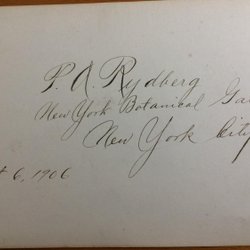 P. A. Rydberg
New York Botanical Ga
New York City
6, 1906